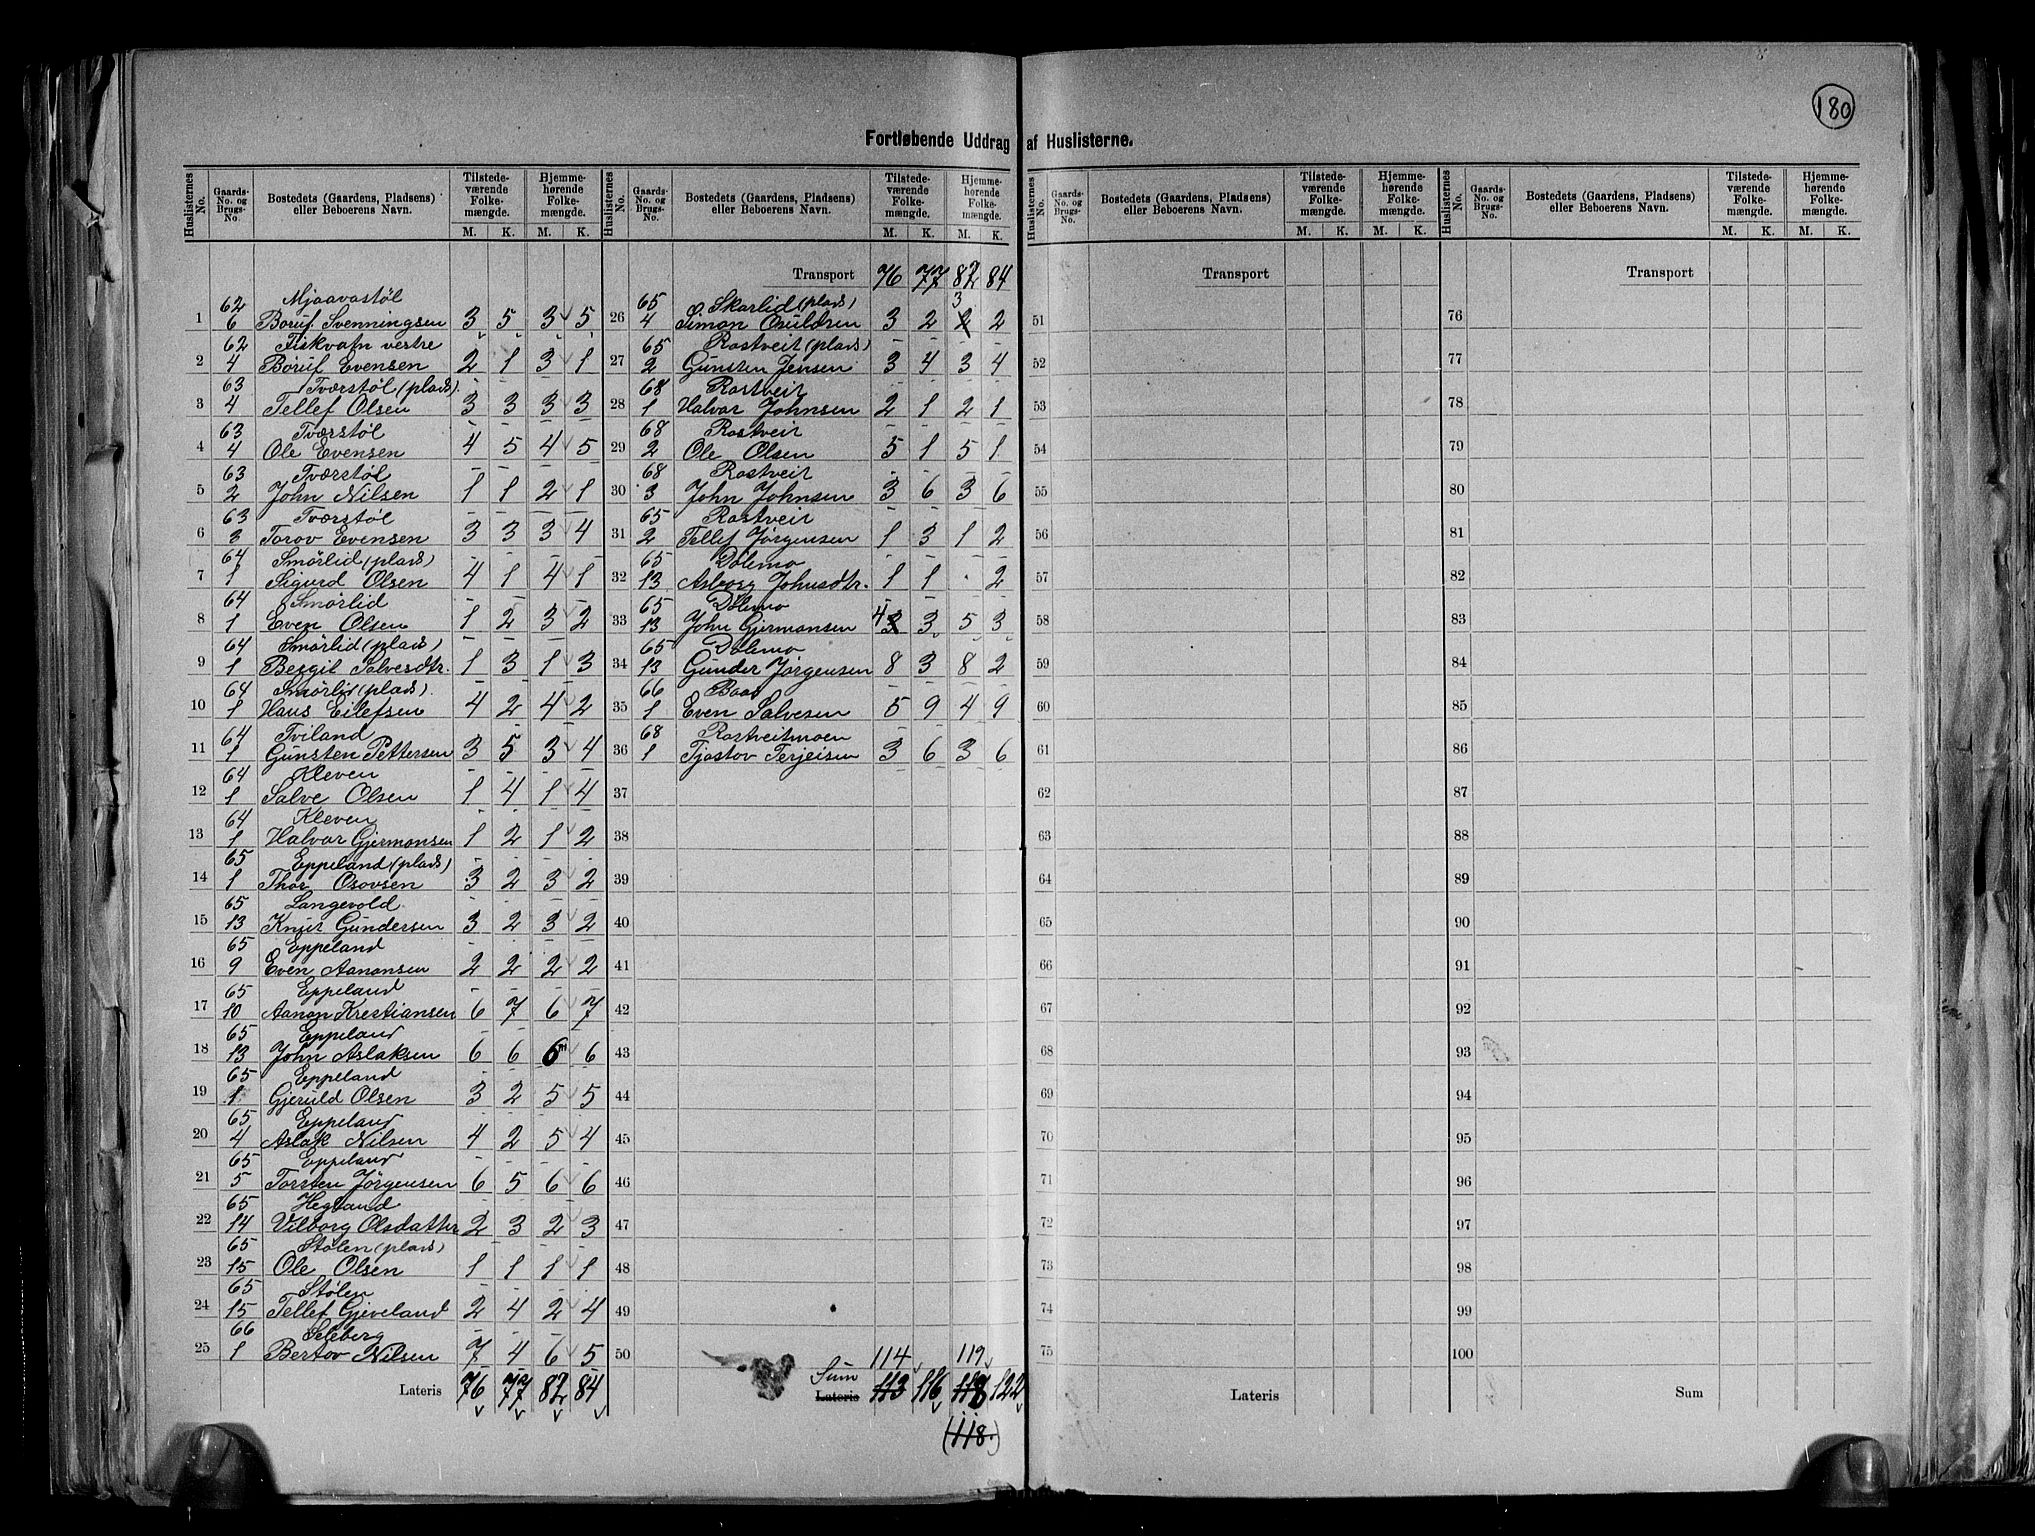 180
Fortløbende Uddrag af Huslisterne.
Huslisternes No. Gaards-No. og Brugs-No. Bostedets (Gaardens, Pladsens) eller Beboerens Navn. Tilstedeværende Folkemængde. M. K. Hjemmehørende Folkemængde. M. K.
62 Mjaavastøl
1 6 Boruf Svenningsen 3 5 3 5
62 Fiskvatn vestre
2 4 Boruf Evensen 2 1 3 1
63 Tværstøl (plads)
3 4 Tellef Olsen 3 3 3 3
63 Tværstøl
4 4 Ole Evensen 4 5 4 5
63 Tværstøl
5 2 John Nilsen 1 1 2 1
63 Tværstøl
6 3 Torov Evensen 3 3 3 4
64 Smørlid (plads)
7 1 Sigurd Olsen 4 1 4 1
64 Smørlid
8 1 Even Olsen 1 2 3 2
64 Smørlid (plads)
9 1 Bergit Salvesdtr. 1 3 1 3
64 Smørlid (plads).
10 1 Hans Eilefsen 4 2 4 2
64 Tviland
11 1 Gunsten Pettersen 3 5 3 4
64 Kleven
12 1 Salve Olsen 1 4 1 4
64 Kleven
13 1 Halvor Gjermonsen 1 2 1 2
65 Eppeland (plads)
14 1 Thor Osovsen 3 2 3 2
65 Langevold
15 13 Knut Gundersen 3 2 3 2
65 Eppeland
16 9 Even Aanonsen 2 2 2 2
65 Eppeland
17 10 Aanon Krestiansen 6 7 6 7
65 Eppeland
18 13 John Aslaksen 6 6 6 6
65 Eppeland
19 1 Gjeruld Olsen 3 2 5 5
65 Eppeland
20 4 Aslak Nilsen 4 2 5 4
65 Eppeland
21 5 Torsten Jørgensen 6 5 6 6
65 Hegland
22 14 Vilborg Olsdatter 2 3 2 3
65 Stølen (plads)
23 15 Ole Olsen 1 1 1 1
65 Stølen
24 15 Tellef Gjeveland 2 4 2 4
66 Seleberg
25 1 Bertov Nilsen 7 4 6 5
Lateris 76 77 82 84
Huslisternes No. Gaards-No. og Brugs-No. Bostedets (Gaardens, Pladsens) eller Beboerens Navn. Tilstedeværende Folkemængde. M. K. Hjemmehørende Folkemængde. M. K.
Transport 76 77 82 84
65 Skarlid (plads) 3
26 4 Simon Osuldsen 3 2 2 2
65 Rostveit (plads)
27 2 Gunsten Jensen 3 4 3 4
68 Rostveit
28 1 Halvor Johnsen 2 1 2 1
68 Rostveit
29 2 Ole Olsen 5 1 5 1
68 Rostveit
30 3 John Johnsen 3 6 3 6
65 Rostveit
31 2 Tellef Jørgensen 1 3 1 2
65 Dølemo
32 13 Asborg Johnsdtr. 1 1 . 2
65 Dølemo
33 13 John Gjermonsen 4 3 3 5 3
65 Dølemo
34 13 Gunder Jørgensen 8 3 8 2
66 Baas
35 1 Even Salvesen 5 9 4 9
68 Rostveitmoen
36 1 Tjostov Terjeisen 3 6 3 6
37
38
39
40
41
42
43
44
45
46
47
48
49
50
114 119
Sum Lateris 113 116 118 122
(118.)
Huslisternes No. Gaards-No. og Brugs-No. Bostedets (Gaardens, Pladsens) eller Beboerens Navn. Tilstedeværende Folkemængde. M. K. Hjemmehørende Folkemængde. M. K.
Transport
51
52
53
54
55
56
57
58
59
60
61
62
63
64
65
66
67
68
69
70
71
72
73
74
75
Lateris
Huslisternes No. Gaards-No. og Brugs-No. Bostedets (Gaardens, Pladsens) eller Beboerens Navn. Tilstedeværende Folkemængde. M. K. Hjemmehørende Folkemængde. M. K.
Transport
76
77
78
79
80
81
82
83
84
85
86
87
88
89
90
91
92
93
94
95
96
97
98
99
100
Sum